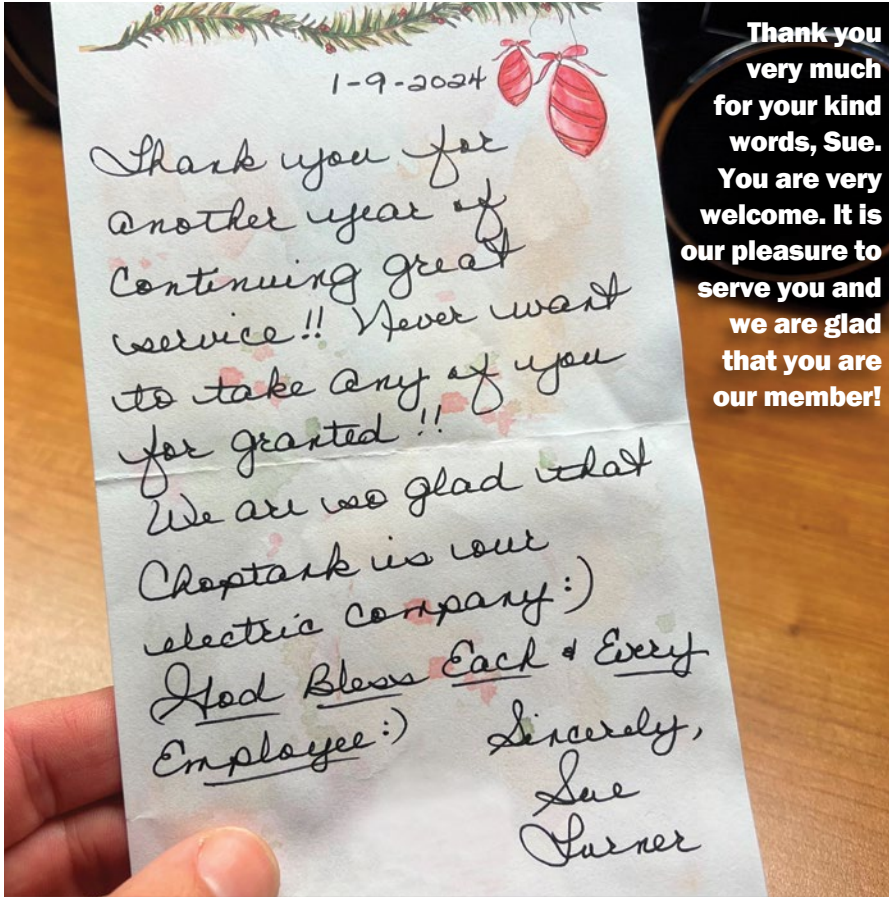 1-9-2024
Thank you for
another year of
continuing great
service!! Never want
to take any of you
for granted!!
We are so glad that
Choptank is our
electric company:)
God Bless Each & Every
Employee:)
Sincerely,
Sue
Turner
Thank you
very much
for your kind
words, Sue.
You are very
welcome. It is
our pleasure to
serve you and
we are glad
that you are
our member!